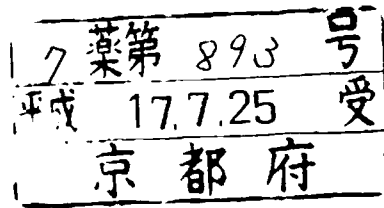 7薬第 893 号
平成 17.7.25 受
京都府